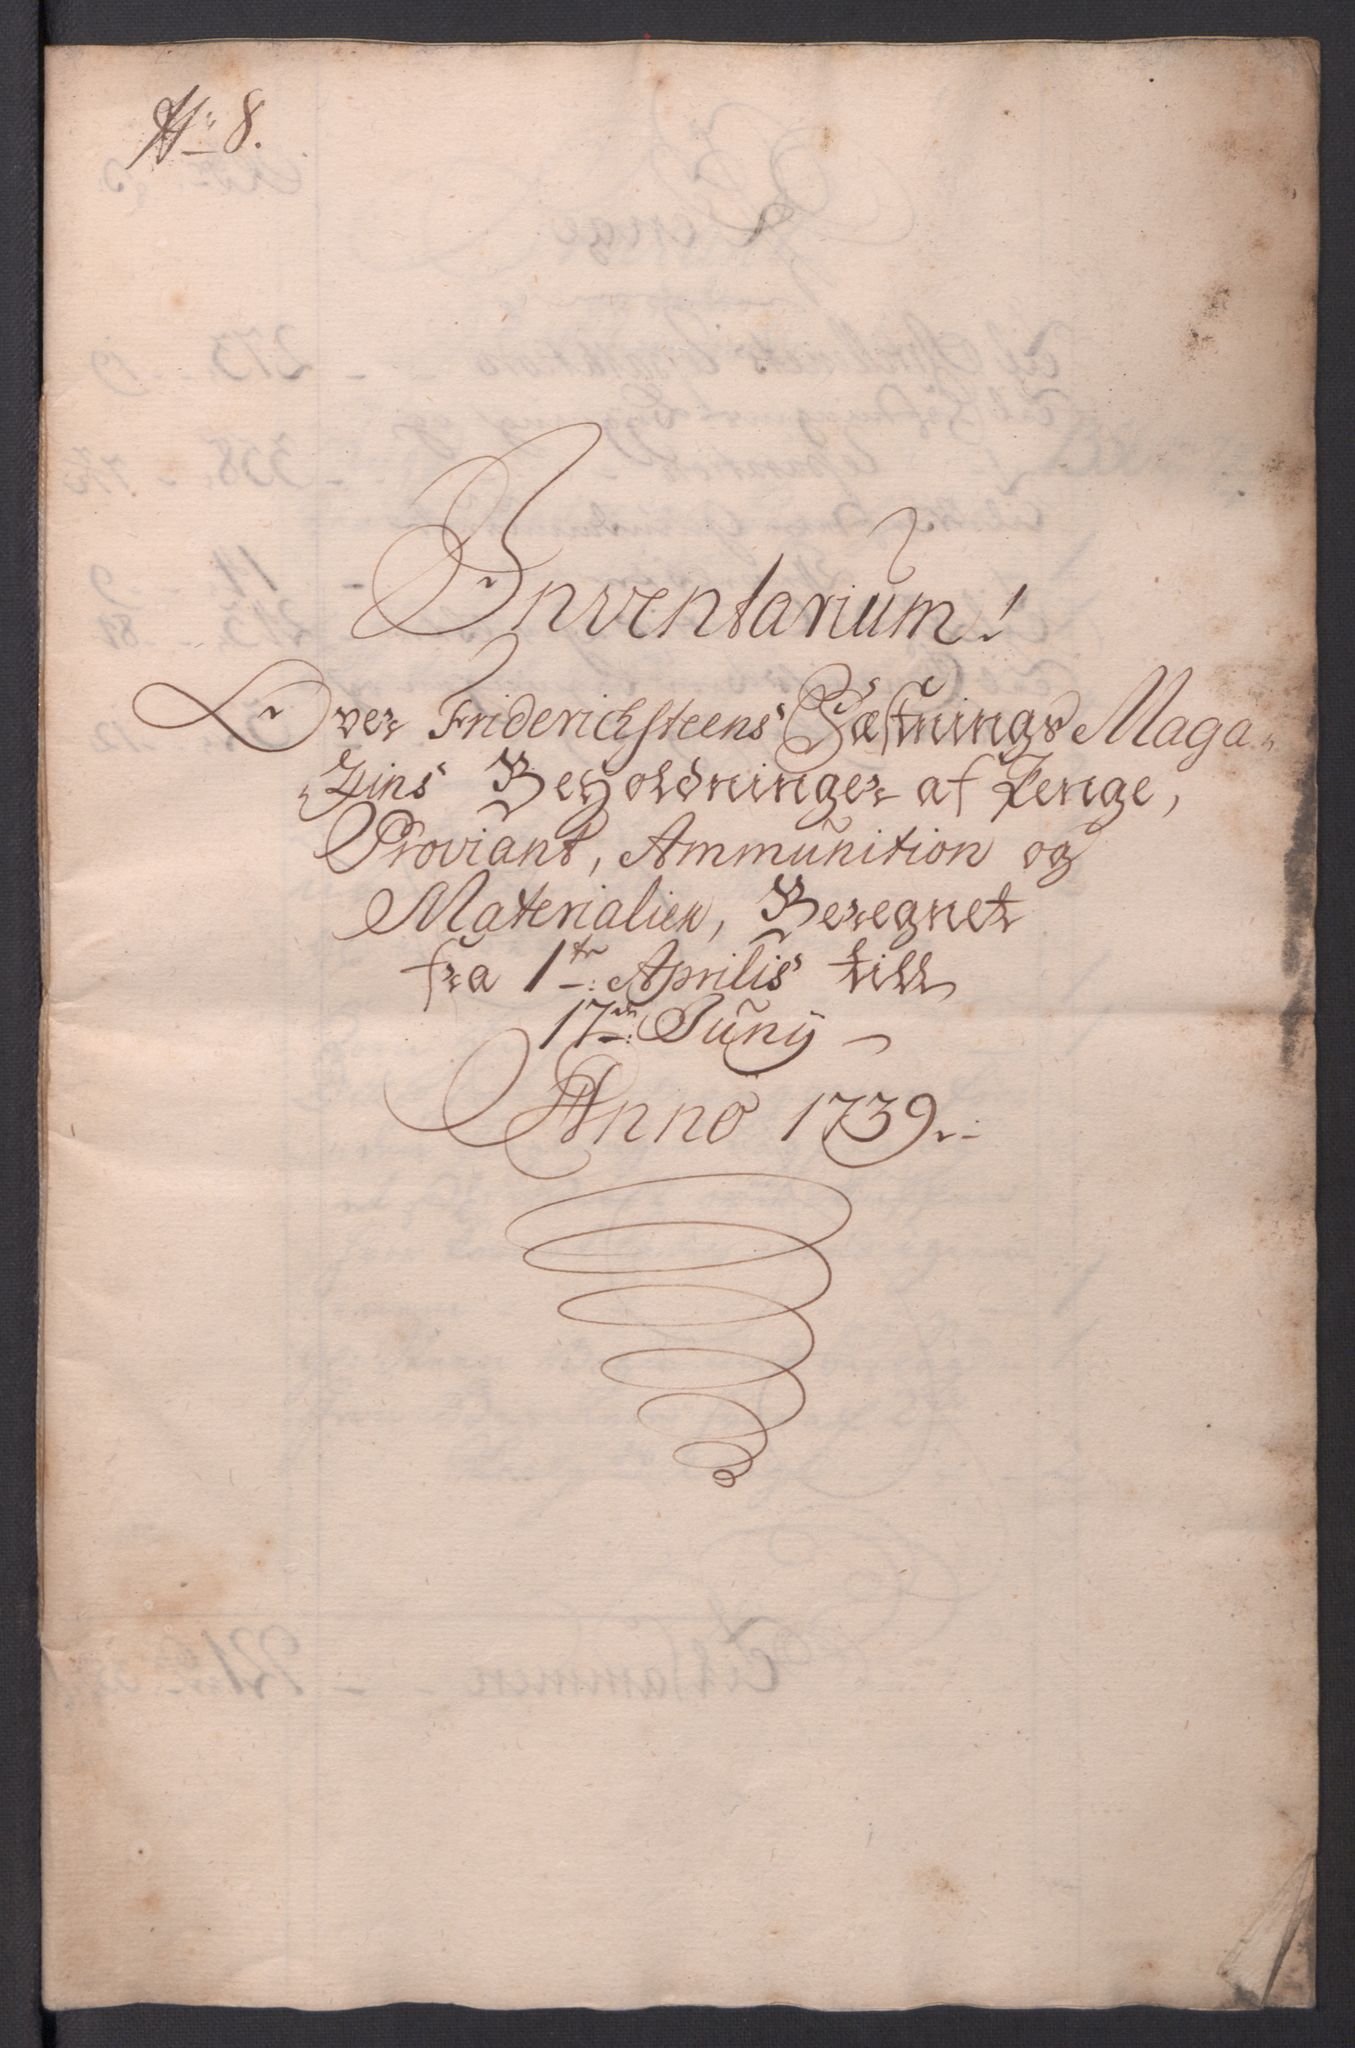 No 8.
Inventarium!
Over Friderichsteens Fæstnings Maga
Zins Beholdninger af Penge,
Proviant, Ammunition og
Materialier, Beregnet
fra 1te: Aprilis till
17de: Juny
Anno 1739.